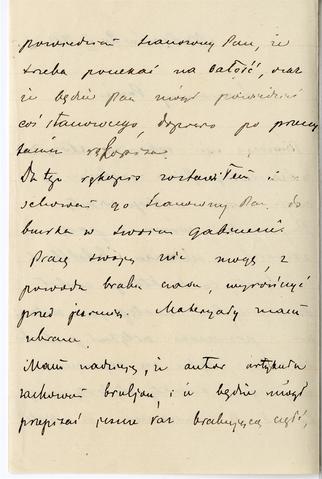 powiedział Szanowny Pan, że
trzeba poczekać na całość, oraz
że będzie Pan mógł powiedzieć
coś stanowczego, dopiero po przeczy
taniu rękopisu.
Dla tego rękopis zostawiłem i
schował go Szanowny Pan do
biurka w swoim gabinecie.
Pracy swojej nie mogę, z
powodu braku czasu, wykończyć
przed jesienią. Materyały mam
zebrane.
Mam nadzieję, że autor artykułu
zachował brulion, i że będzie mógł
przepisać jeszcze raz brakującą część,